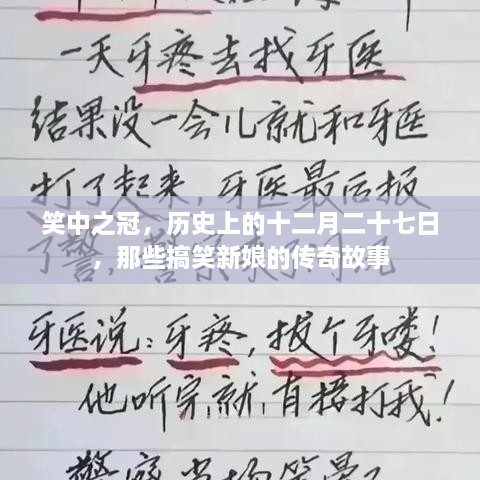 一天牙疼去找牙医
结果没一会儿就和牙医
打了起来,牙医最后报
笑中之冠，历史上的十二月二十七日
，那些搞笑新娘的传奇故事
牙医说:牙疼,拔个牙喽!
他听完,就直接打我!
警察当场笑晕了